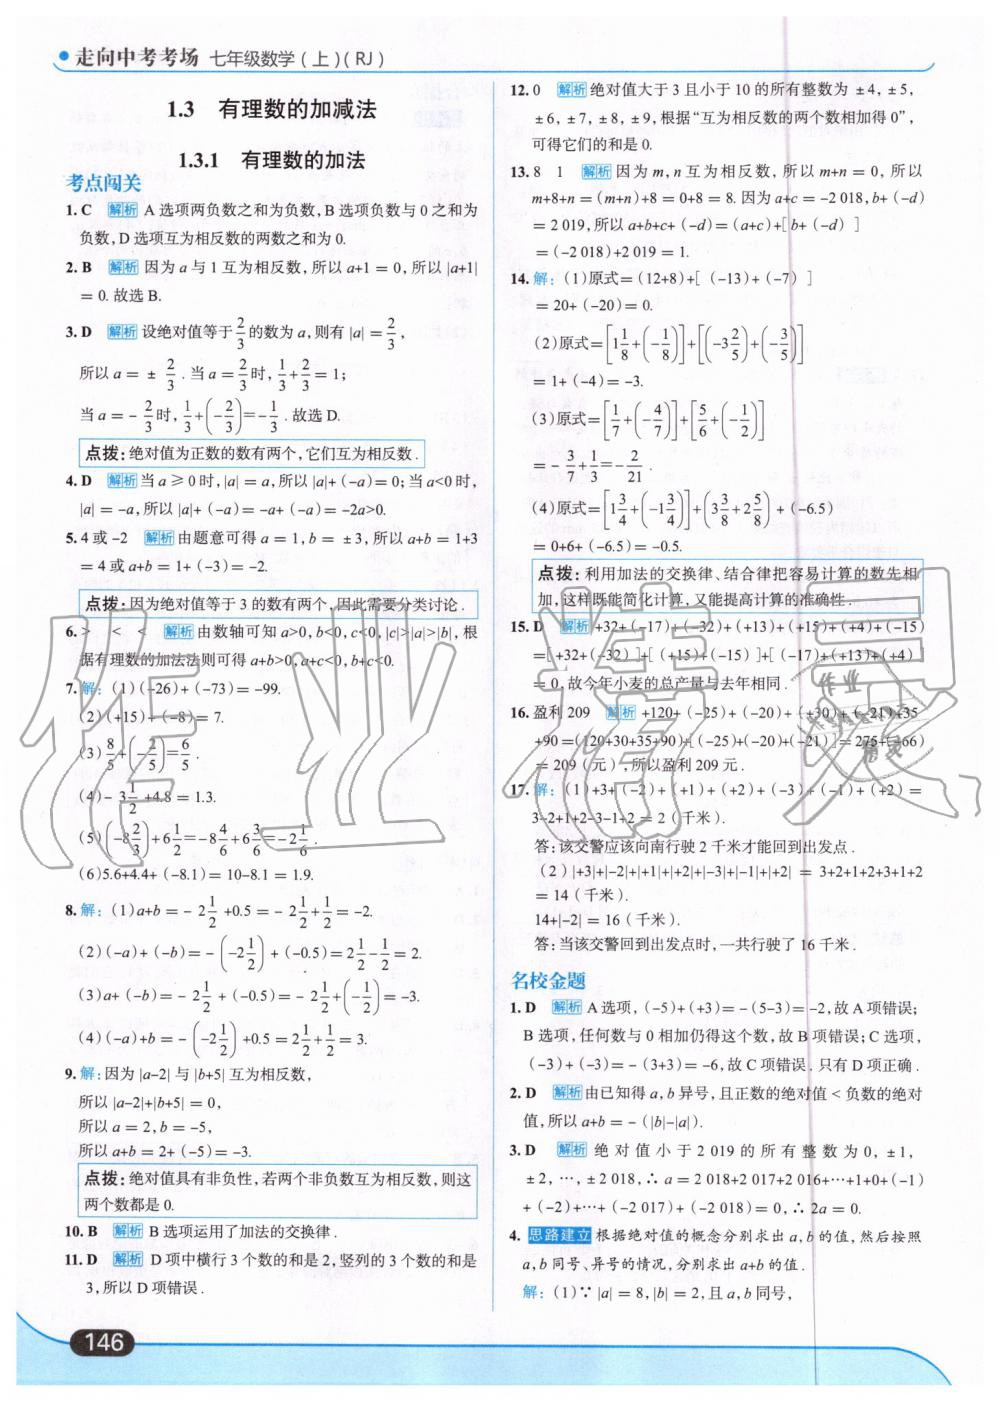 走向中考考场 七年级数学(上)(RJ)
1.3 有理数的加减法
1.3.1 有理数的加法
考点闯关
1. C 解析 A 选项两负数之和为负数,B 选项负数与 0 之和为
负数,D 选项互为相反数的两数之和为 0.
2. B 解析 因为 a 与 1 互为相反数,所以 a+1 = 0,所以 |a+1|
= 0. 故选 B.
3. D 解析 设绝对值等于 2/3 的数为 a,则有 |a| = 2/3,
所以 a = ± 2/3. 当 a = 2/3 时, 1/3+2/3 = 1;
当 a = - 2/3 时, 1/3+(-2/3) = -1/3. 故选 D.
点拨:绝对值为正数的数有两个,它们互为相反数.
4. D 解析 当 a ≥ 0 时,|a| = a,所以 |a|+(-a)= 0;当 a<0 时,
|a| = -a,所以 |a|+(-a)= -a+(-a)= -2a>0.
5. 4 或 -2 解析 由题意可得 a = 1,b = ±3,所以 a+b = 1+3
= 4 或 a+b = 1+(-3)= -2.
点拨:因为绝对值等于 3 的数有两个,因此需要分类讨论.
6. > < < 解析 由数轴可知 a>0,b<0,c<0,|c|>|a|>|b|,根
据有理数的加法法则可得 a+b>0,a+c<0,b+c<0.
7. 解:(1)(-26)+(-73)= -99.
(2)(+15)+(-8)= 7.
(3) 8/5+(-2/5) = 6/5.
(4)- 3 1/2 +4.8 = 1.3.
(5)(-8 2/3)+6 1/2 = -8 4/6+6 3/6 = -2 1/6.
(6)5.6+4.4+(-8.1)= 10-8.1 = 1.9.
8. 解:(1)a+b = - 2 1/2 +0.5 = - 2 1/2+1/2 = -2.
(2)(-a)+(-b)= -(-2 1/2)+(-0.5)= 2 1/2-1/2 = 2.
(3)a+(-b)= - 2 1/2 +(-0.5)= - 2 1/2+(-1/2) = -3.
(4)(-a)+b = -(-2 1/2)+0.5 = 2 1/2+1/2 = 3.
9. 解:因为 |a-2| 与 |b+5| 互为相反数,
所以 |a-2|+|b+5| = 0,
所以 a = 2,b = -5,
所以 a+b = 2+(-5)= -3.
点拨:绝对值具有非负性,若两个非负数互为相反数,则这
两个数都是 0.
10. B 解析 B 选项运用了加法的交换律.
11. D 解析 D 项中横行 3 个数的和是 2,竖列的 3 个数的和是
3,所以 D 项错误.
146
12. 0 解析 绝对值大于 3 且小于 10 的所有整数为 ±4,±5,
±6,±7,±8,±9,根据“互为相反数的两个数相加得 0”,
可得它们的和是 0.
13. 8 1 解析 因为 m,n 互为相反数,所以 m+n = 0,所以
m+8+n =(m+n)+8 = 0+8 = 8. 因为 a+c = -2 018,b+(-d)
= 2 019,所以 a+b+c+(-d)=(a+c)+[b+(-d)]
=(-2 018)+2 019 = 1.
14. 解:(1)原式=(12+8)+[(-13)+(-7)]
= 20+(-20)= 0.
(2)原式=[1 1/8+(-1/8)]+[(-3 2/5)+(-3/5)]
= 1+(-4)= -3.
(3)原式=[1/7+(-4/7)]+[5/6+(-1/2)]
= - 3/7+1/3 = - 2/21.
(4)原式=[1 3/4+(-1 3/4)]+(3 3/8+2 5/8)+(-6.5)
= 0+6+(-6.5)= -0.5.
点拨:利用加法的交换律、结合律把容易计算的数先相
加,这样既能简化计算,又能提高计算的准确性.
15. D 解析 +32+(-17)+(-32)+(+13)+(+15)+(+4)+(-15)
=[+32+(-32)]+[(+15)+(-15)]+[(-17)+(+13)+(+4)]
= 0,故今年小麦的总产量与去年相同.
16. 盈利 209 解析 +120+(-25)+(-20)+(+30)+(-21)+35
+90 =(120+30+35+90)+[(-25)+(-20)+(-21)] = 275+(-66)
= 209(元),所以盈利 209 元.
17. 解:(1)+3+(-2)+(+1)+(+2)+(-3)+(-1)+(+2)=
3-2+1+2-3-1+2 = 2(千米).
答:该交警应该向南行驶 2 千米才能回到出发点.
(2)|+3|+|-2|+|+1|+|+2|+|-3|+|-1|+|+2| = 3+2+1+2+3+1+2
= 14(千米).
14+|-2| = 16(千米).
答:当该交警回到出发点时,一共行驶了 16 千米.
名校金题
1. D 解析 A 选项,(-5)+(+3)= -(5-3)= -2,故 A 项错误;
B 选项,任何数与 0 相加仍得这个数,故 B 项错误;C 选项,
(-3)+(-3)= -(3+3)= -6,故 C 项错误. 只有 D 项正确.
2. D 解析 由已知得 a,b 异号,且正数的绝对值 < 负数的绝对
值,所以 a+b = -(|b|-|a|).
3. D 解析 绝对值小于 2 019 的所有整数为 0,±1,
±2,…,±2 018,∴ a = 2 018+2 017+2 016+…+1+0+(-1)
+(-2)+…+(-2 017)+(-2 018)= 0,∴ 2a = 0.
4. 思路建立 根据绝对值的概念分别求出 a,b 的值,然后按照
a,b 同号、异号的情况,分别求出 a+b 的值.
解:(1)∵ |a| = 8,|b| = 2,且 a,b 同号,
作业精灵